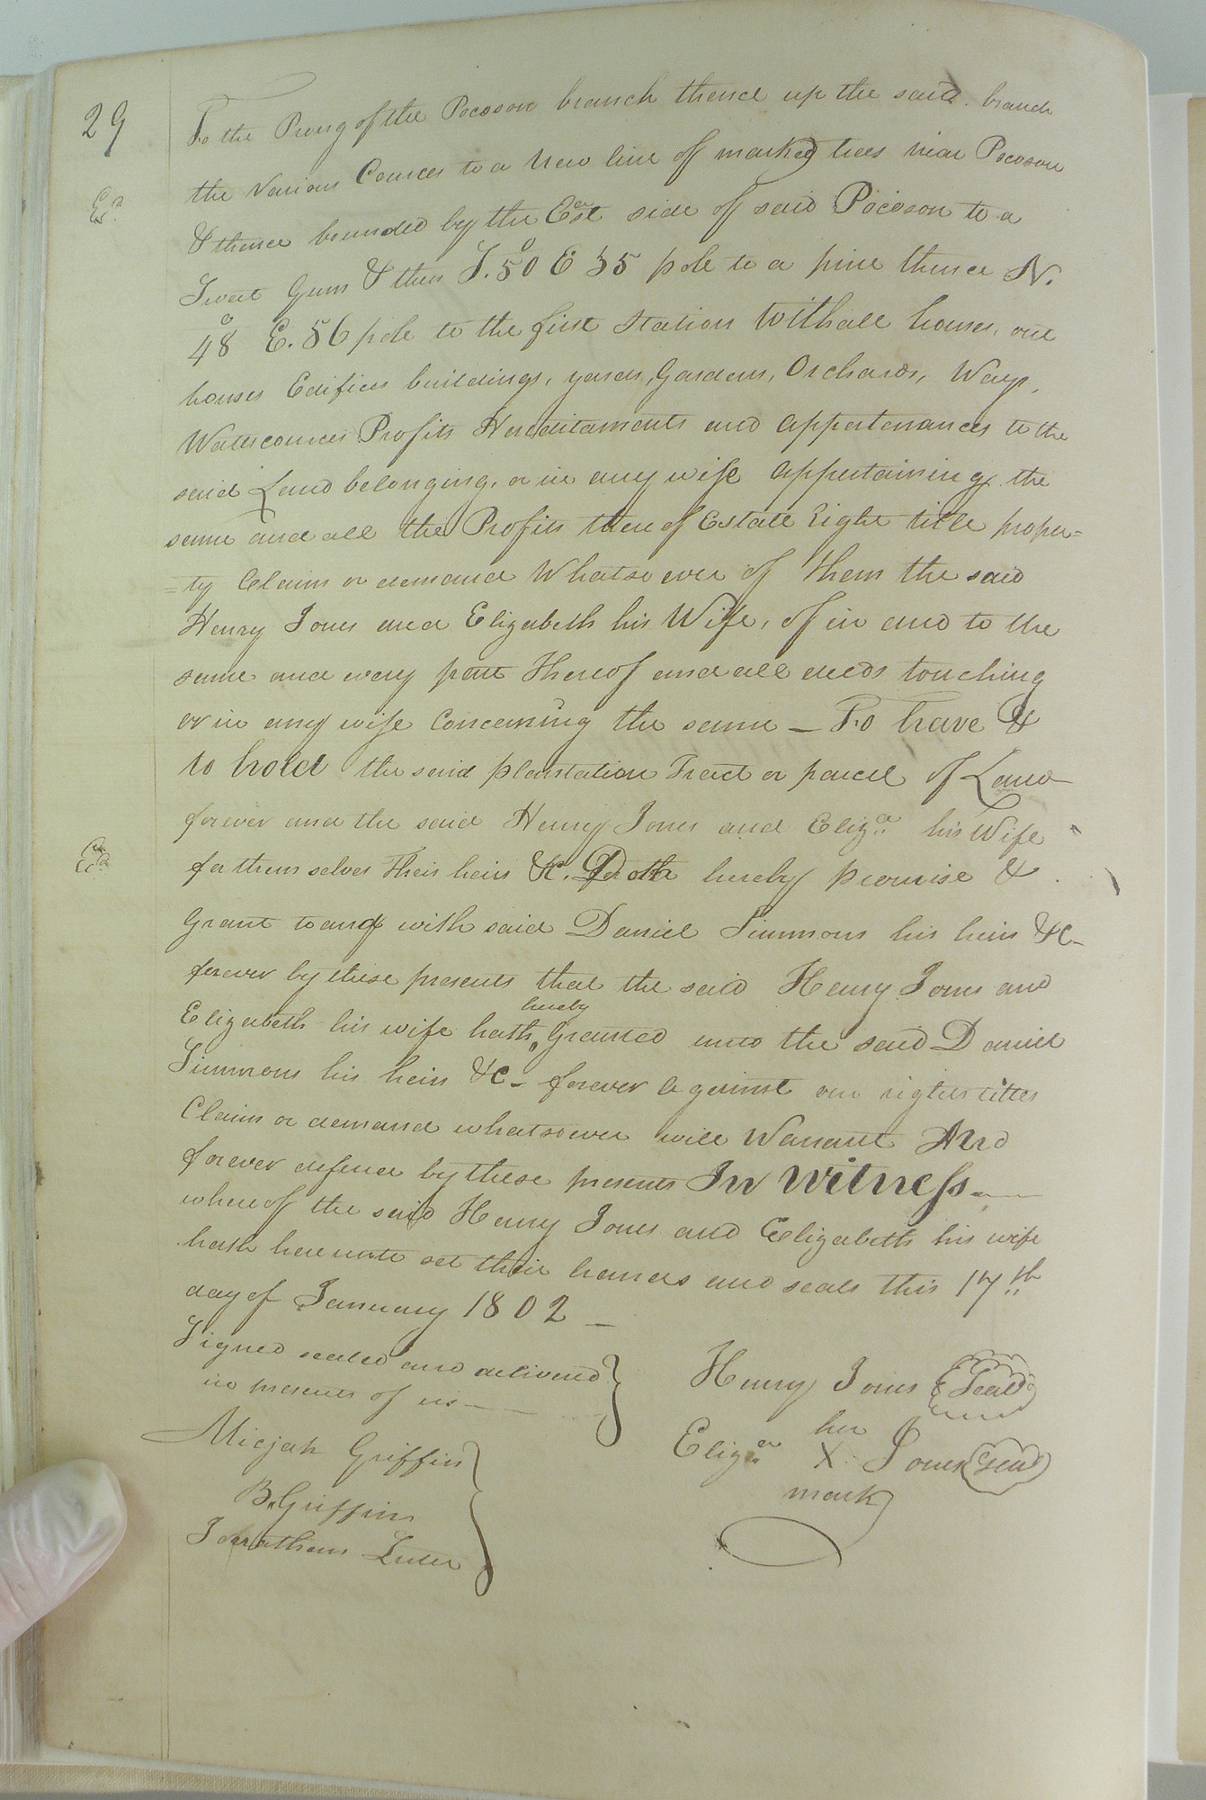 29
To the Prong of the Pocoson branch thence up the said branch
the various Cources to a new line of marked trees near Pocoson
& thence bounded by the East side of said Pocoson to a
Sweet Gum & then S. 50° E 35 pole to a pine thence N.
48° E. 56 pole to the first Station With all houses, out
houses Edifices buildings, yards, Gardens, Orchards, Ways,
Watercources Profits Hereditaments and appertenances to the
said Land belonging, or in any wise appertaining, the
same and all the Profits thereof Estate right title proper=
=ty Claim or demand Whatsoever of them the said
Henry Jones and Elizabeth his Wife, of in and to the
same and every part thereof and all deeds touching
or in any wise Concerning the same — To have &
to hold the said plantation Tract or parcel of Land
forever and the said Henry Jones and Eliza his Wife
for themselves their heirs &c. Doth hereby promise &
Grant to and with said Daniel Simmons his heirs &c-
forever by these presents that the said Henry Jones and
hereby
Elizabeth his wife hath Granted unto the said Daniel
Simmons his heirs &c- forever against our rights titles
Claim or demand whatsoever will Warrant And
forever defend by these presents In Witness
whereof the said Henry Jones and Elizabeth his wife
hath hereunto set their hands and seals this 17th
day of January 1802 —
Signed sealed and delivered
in presents of us
Henry Jones Seal
her
Eliza X Jones seal
mark
Micjah Griffin
B. Griffin
Jonathan Luter